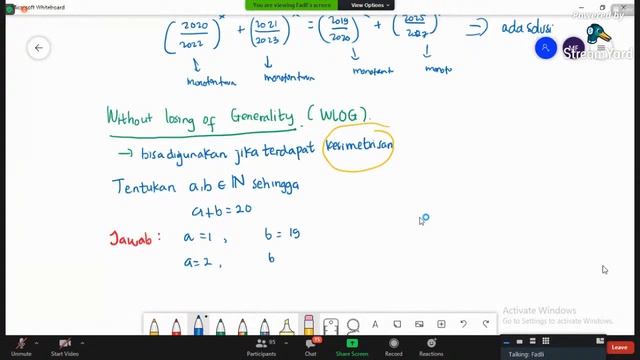 Microsoft Whiteboard
You are viewing Fadli's screen
View Options
Powered by
StreamYard
(2020/2022)^x + (2021/2023)^x = (2019/2020) + (2025/2027) ⇒ ada solusi
monoton turun
monoton turun
monoton t
monoto
Without losing of Generality. (WLOG).
→ bisa digunakan jika terdapat kesimetrisan
Tentukan a,b ∈ ℕ sehingga
a+b = 20
Jawab : a = 1 , b = 19
a = 2 , b
Activate Windows
Go to Settings to activate Windows.
Talking: Fadli
Unmute
Start Video
95
Participants
Chat
Share Screen
Record
Reactions
Leave